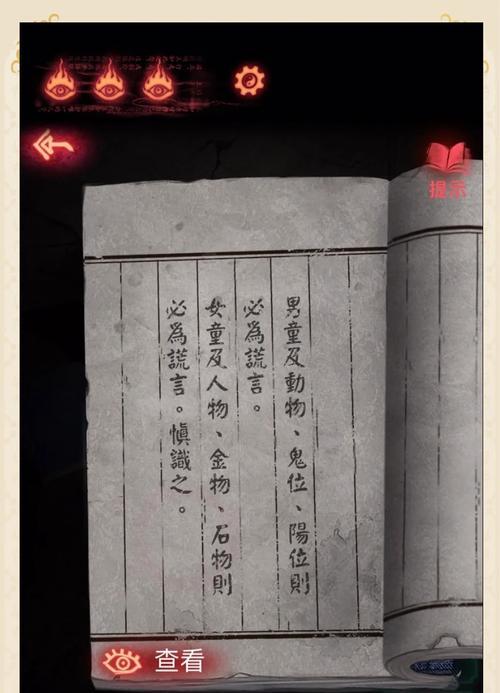 提示
男童及動物、鬼位、陽位則
必為謊言。
女童及人物、金物、石物則
必為謊言。慎識之。
查看